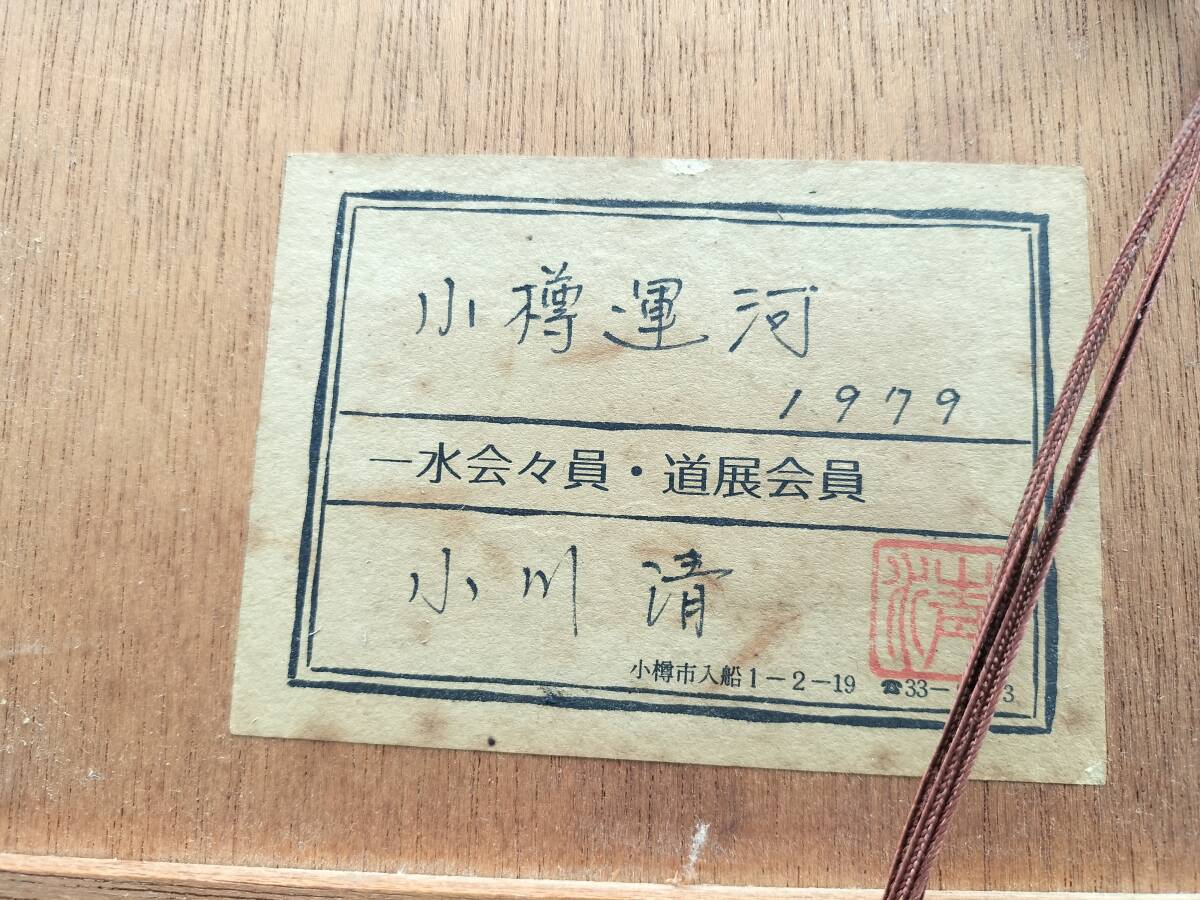 小樽運河
1979
一水会々員・道展会員
小川清
清
小樽市入船1-2-19 ☎33- 3